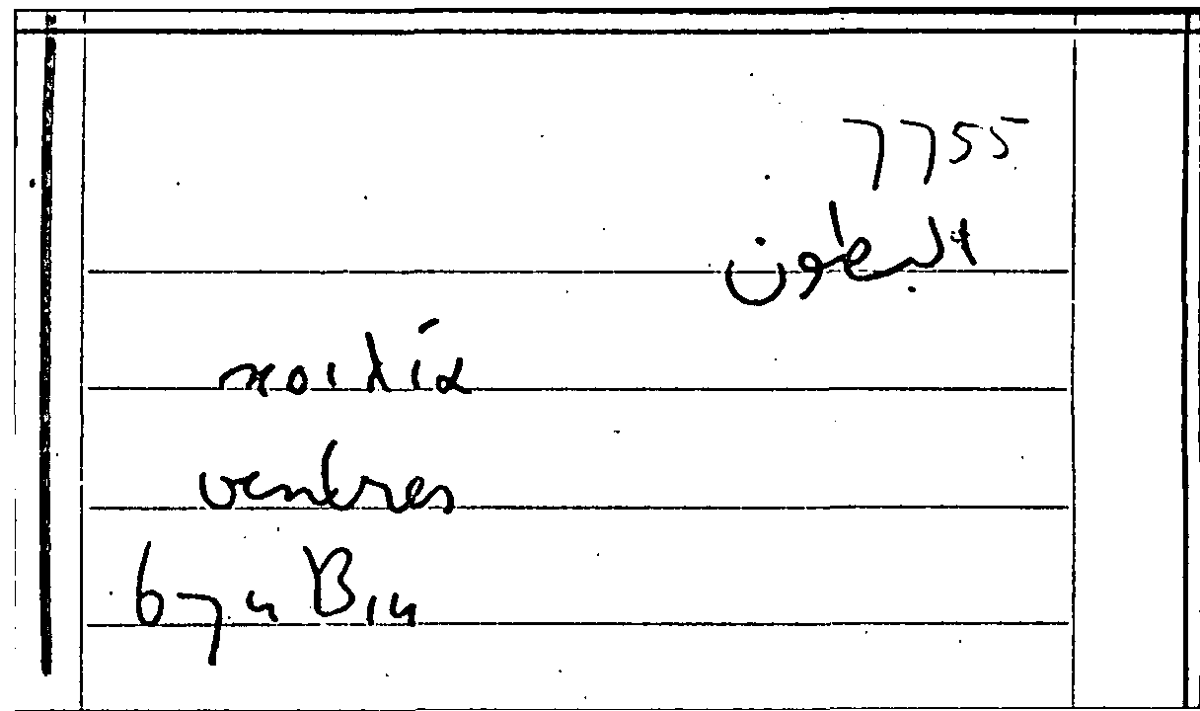 7755
البطون
κοιλία
ventres
674 B14